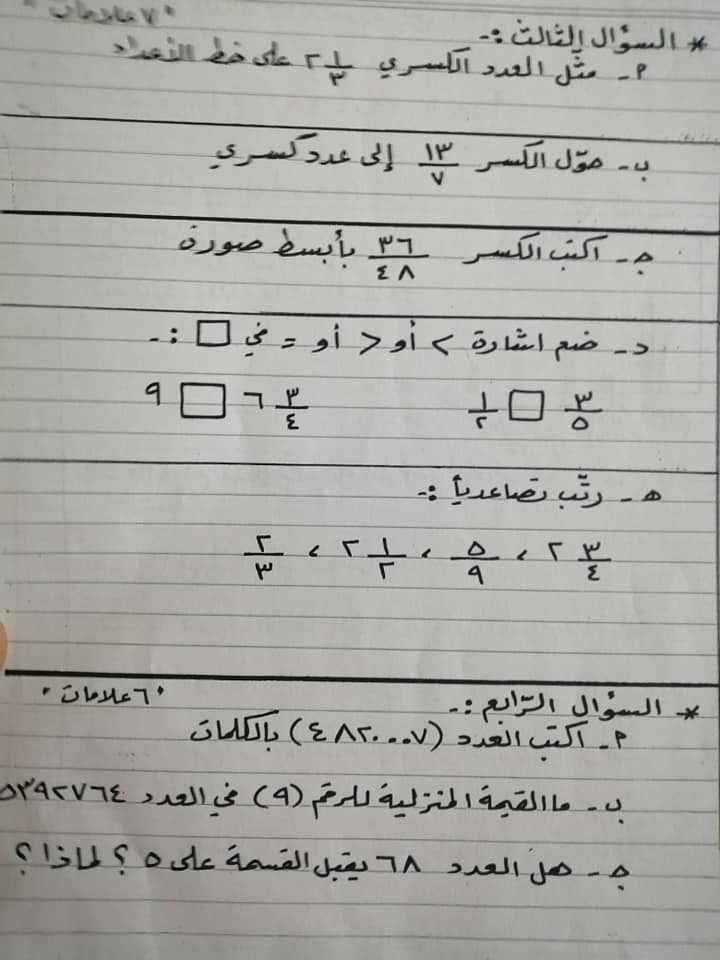 * السؤال الثالث :- "٧ علامات"
أ- مثّل العدد الكسري ٢ ١/٣ على خط الأعداد
ب- حوّل الكسر ١٣/٧ إلى عدد كسري
جـ- اكتب الكسر ٣٦/٤٨ بأبسط صورة
د- ضع اشارة > أو < أو = في □ :-
٣/٥ □ ١/٢
٦ ٣/٤ □ ٩
هـ- رتّب تصاعدياً :-
٢ ٣/٤ ، ٥/٩ ، ٢ ١/٢ ، ٢/٣
* السؤال الرّابع :- "٦ علامات"
أ- اكتب العدد (٤٨٢٠٠٠٧) بالكلمات
ب- ما القيمة المنزلية للرقم (٩) في العدد ٥٣٩٢٧٦٤
جـ- هل العدد ٦٨ يقبل القسمة على ٥ ؟ لماذا ؟